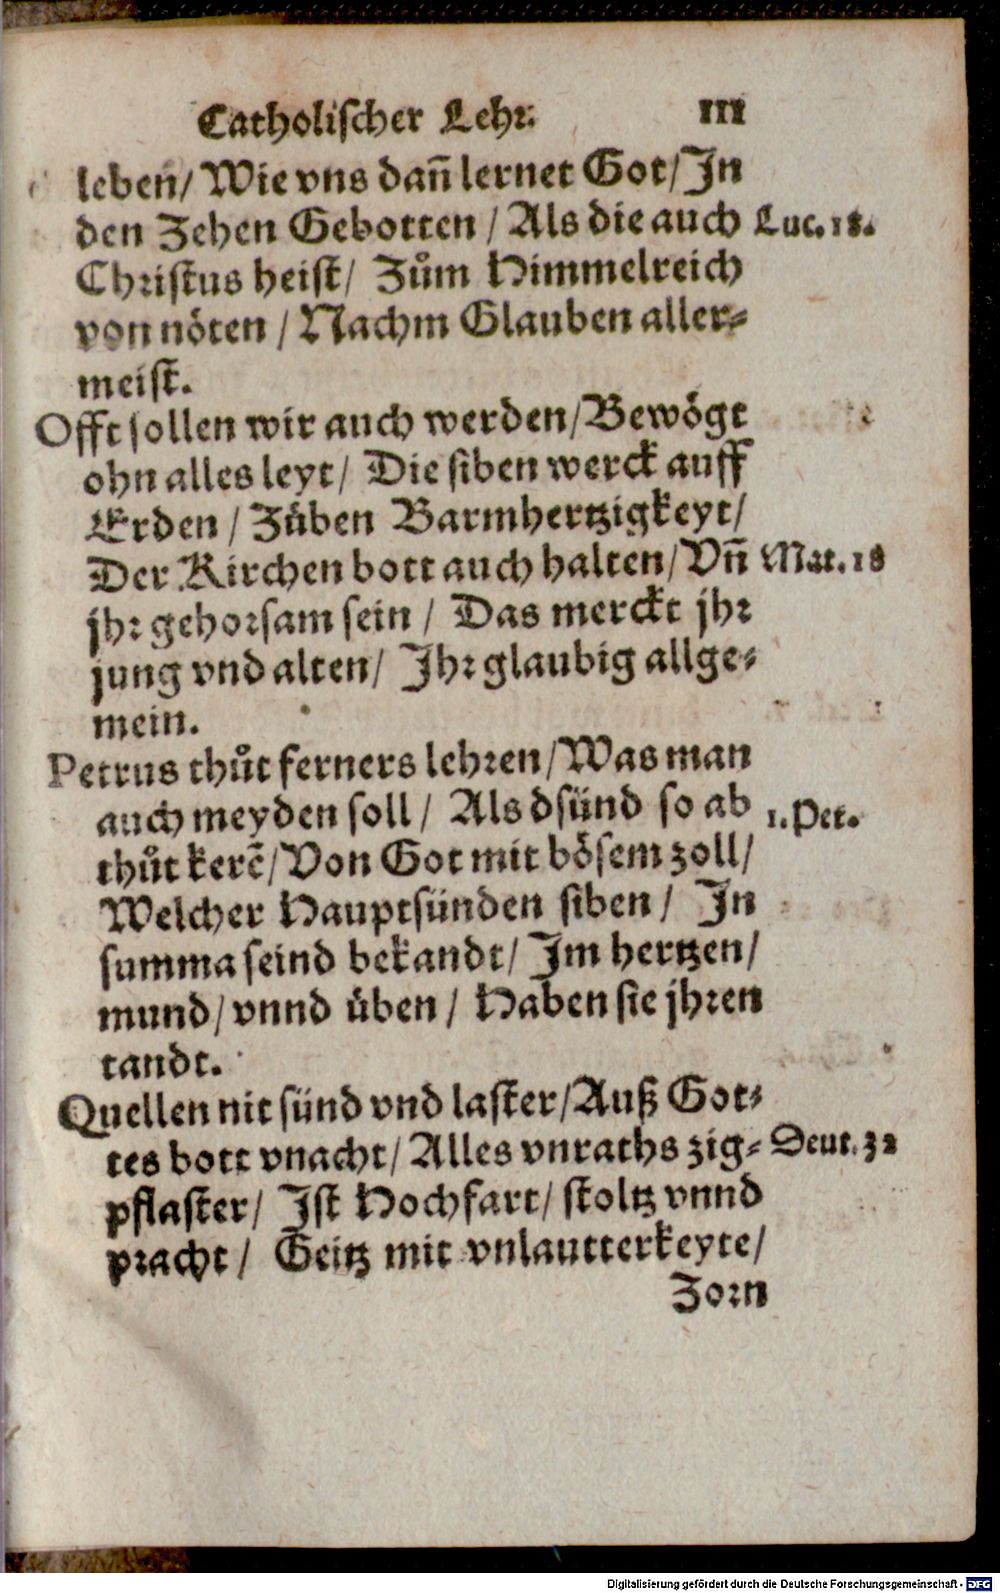 Catholischer Lehr. III
leben/ Wie vns dañ lernet Got/ In
den Zehen Gebotten / Als die auch Luc. 18.
Christus heist/ Zům Himmelreich
von nöten / Nachm Glauben aller-
meist.
Offt sollen wir auch werden/ Bewögt
ohn alles leyt/ Die siben werck auff
Erden / Zůben Barmhertzigkeyt/
Der Kirchen bott auch halten/ Vñ Mat. 18
jhr gehorsam sein / Das merckt jhr
jung vnd alten/ Ihr glaubig allge-
mein.
Petrus thůt ferners lehren/ Was man
auch meyden soll / Als dsünd so ab 1. Pet.
thůt kerẽ/ Von Got mit bösem zoll/
Welcher Hauptsünden siben / In
summa seind bekandt/ Im hertzen/
mund/ vnnd üben / Haben sie jhren
tandt.
Quellen nit sünd vnd laster/ Auß Got-
tes bott vnacht/ Alles vnraths zig- Deut. 32
pflaster/ Ist Hochfart/ stoltz vnnd
pracht / Geitz mit vnlautterkeyte/
Zorn
Digitalisierung gefördert durch die Deutsche Forschungsgemeinschaft - DFG